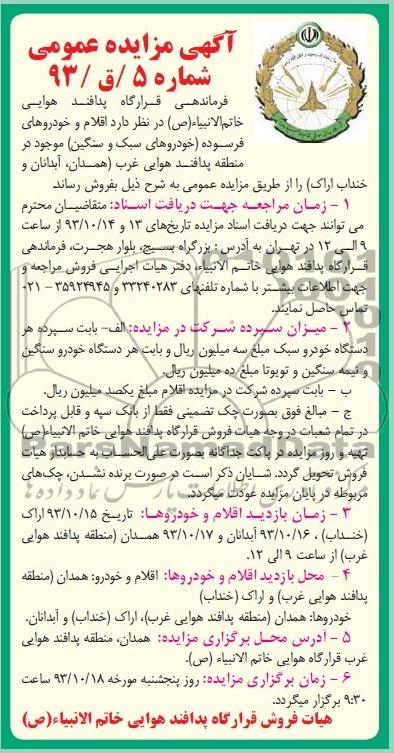 آگهی مزایده عمومی
شماره ۵ /ق /۹۳
فرماندهی قرارگاه پدافند هوایی
خاتم‌الانبیاء(ص) در نظر دارد اقلام و خودروهای
فرسوده (خودروهای سبک و سنگین) موجود در
منطقه پدافند هوایی غرب (همدان، آبدانان و
خنداب اراک) را از طریق مزایده عمومی به شرح ذیل بفروش رساند.
۱ - زمان مراجعه جهت دریافت اسناد: متقاضیان محترم
می توانند جهت دریافت اسناد مزایده تاریخ‌های ۱۳ و ۹۳/۱۰/۱۴ از ساعت
۹ الی ۱۲ در تهران به آدرس : بزرگراه بسیج، بلوار هجرت، فرماندهی
قرارگاه پدافند هوایی خاتم الانبیاء، دفتر هیات اجرایی فروش مراجعه و
جهت اطلاعات بیشتر با شماره تلفنهای ۳۳۲۴۰۲۸۳ و ۳۵۹۲۴۹۴۵ - ۰۲۱
تماس حاصل نمایند.
۲ - میزان سپرده شرکت در مزایده: الف- بابت سپرده هر
دستگاه خودرو سبک مبلغ سه میلیون ریال و بابت هر دستگاه خودرو سنگین
و نیمه سنگین و تویوتا مبلغ ده میلیون ریال.
ب - بابت سپرده شرکت در مزایده اقلام مبلغ یکصد میلیون ریال.
ج - مبالغ فوق بصورت چک تضمینی فقط از بانک سپه و قابل پرداخت
در تمام شعبات در وجه هیات فروش قرارگاه پدافند هوایی خاتم الانبیاء(ص)
تهیه و روز مزایده در پاکت جداگانه بصورت علی‌الحساب به حسابدار هیات
فروش تحویل گردد. شایان ذکر است در صورت برنده نشدن، چک‌های
مربوطه در پایان مزایده عودت میگردد.
۳ - زمان بازدید اقلام و خودروها: تاریخ ۹۳/۱۰/۱۵ اراک
(خنداب) ، ۹۳/۱۰/۱۶ آبدانان و ۹۳/۱۰/۱۷ همدان (منطقه پدافند هوایی
غرب) از ساعت ۹ الی ۱۲.
۴ - محل بازدید اقلام و خودروها: اقلام و خودرو: همدان (منطقه
پدافند هوایی غرب) و اراک (خنداب)
خودروها: همدان (منطقه پدافند هوایی غرب)، اراک (خنداب) و آبدانان.
۵ - آدرس محل برگزاری مزایده: همدان، منطقه پدافند هوایی
غرب قرارگاه هوایی خاتم الانبیاء (ص).
۶ - زمان برگزاری مزایده: روز پنجشنبه مورخه ۹۳/۱۰/۱۸ ساعت
۹:۳۰ برگزار میگردد.
هیات فروش قرارگاه پدافند هوایی خاتم الانبیاء(ص)